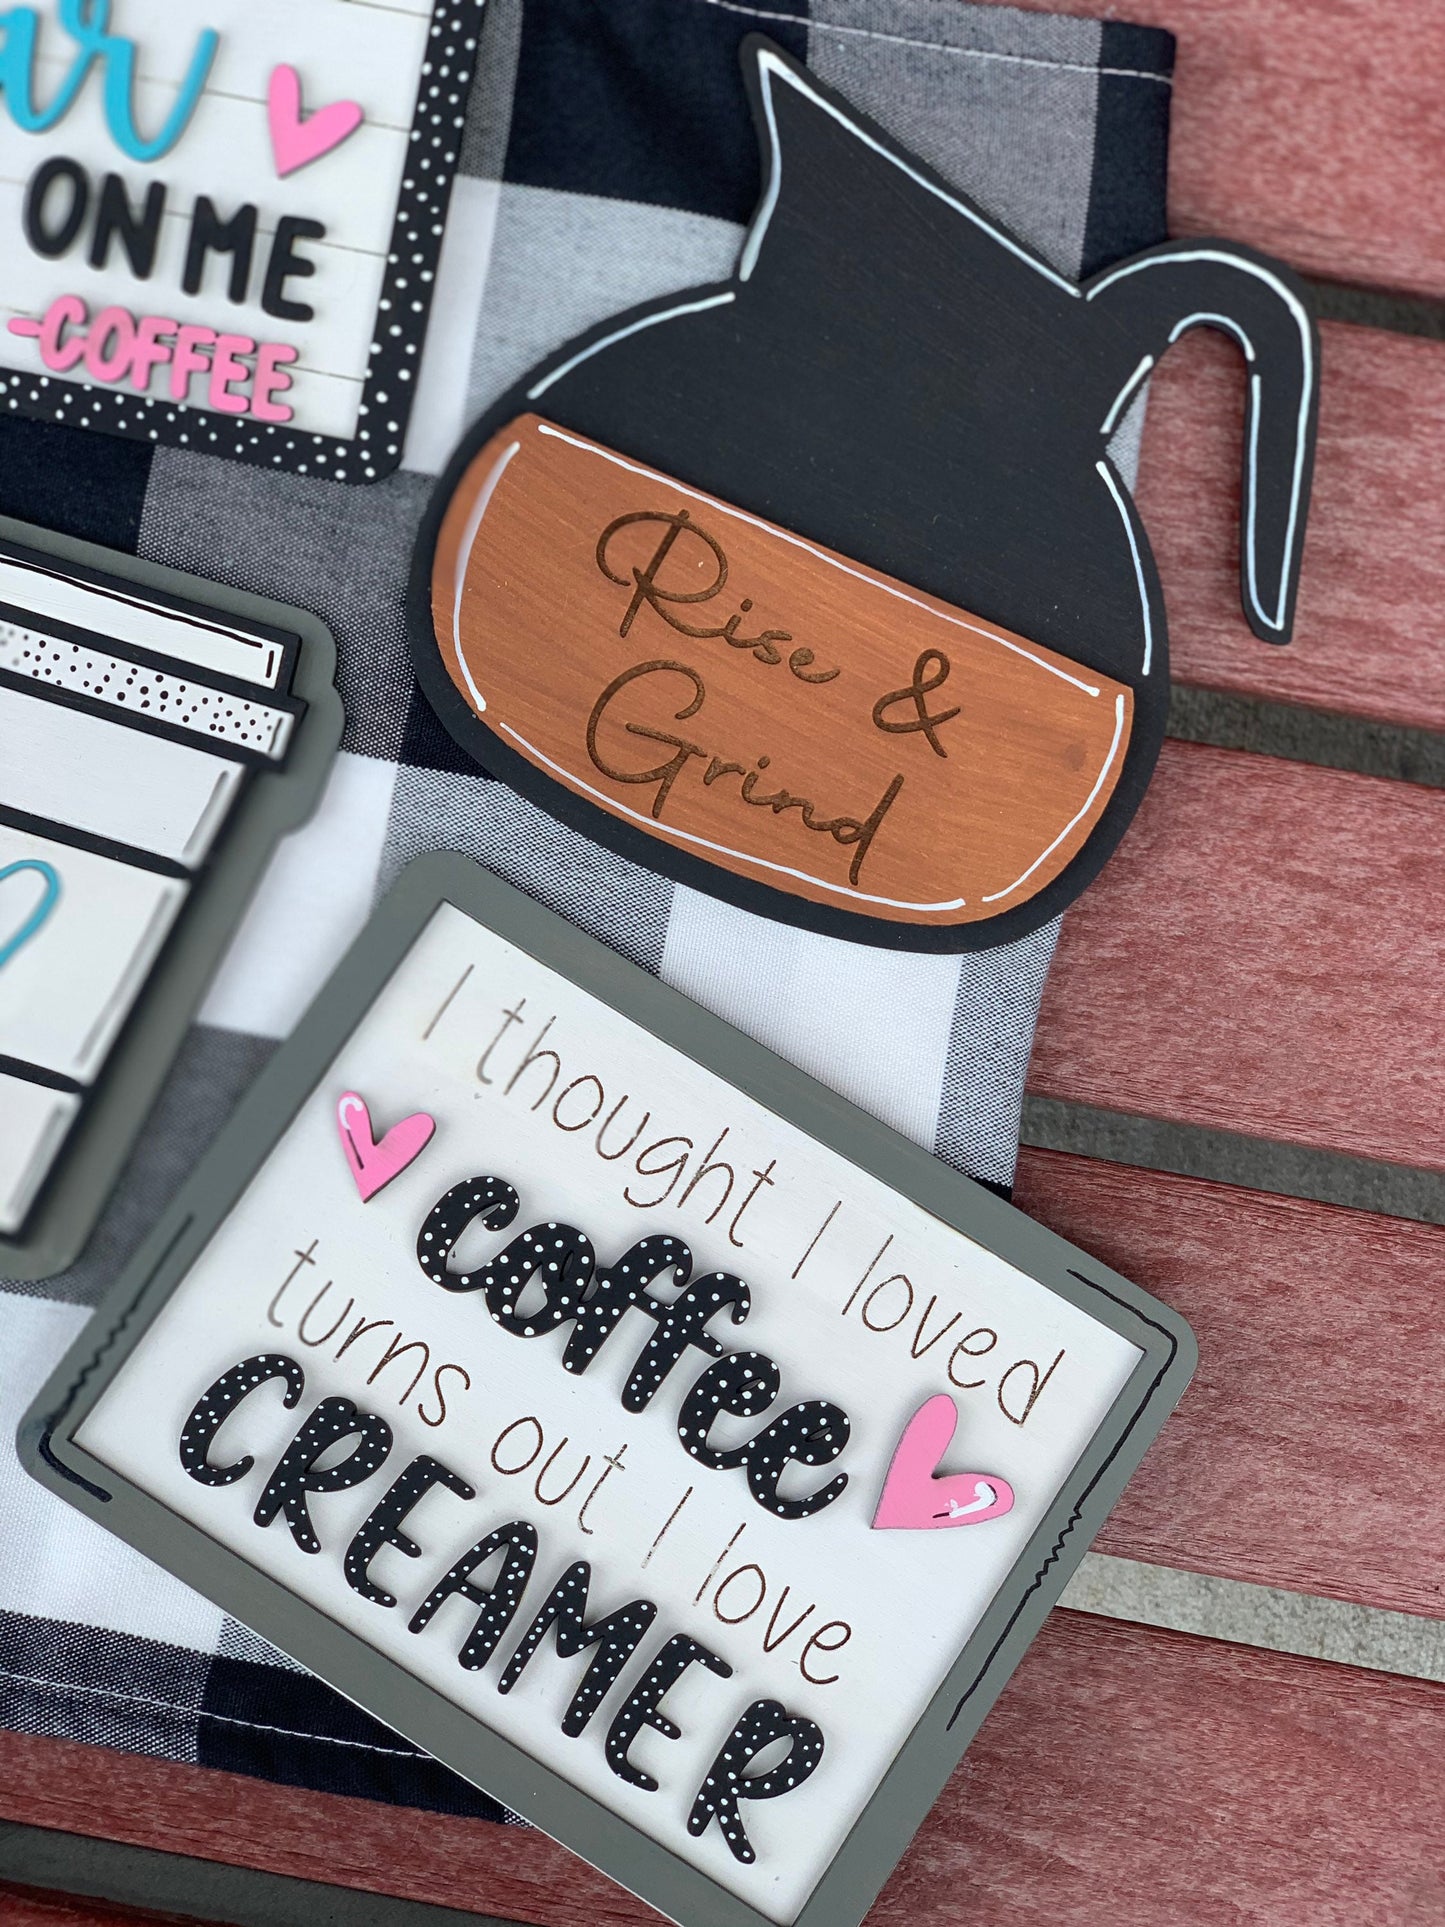 ON ME
COFFEE
Rise &
Grind
I thought I loved
coffee
turns out I love
CREAMER